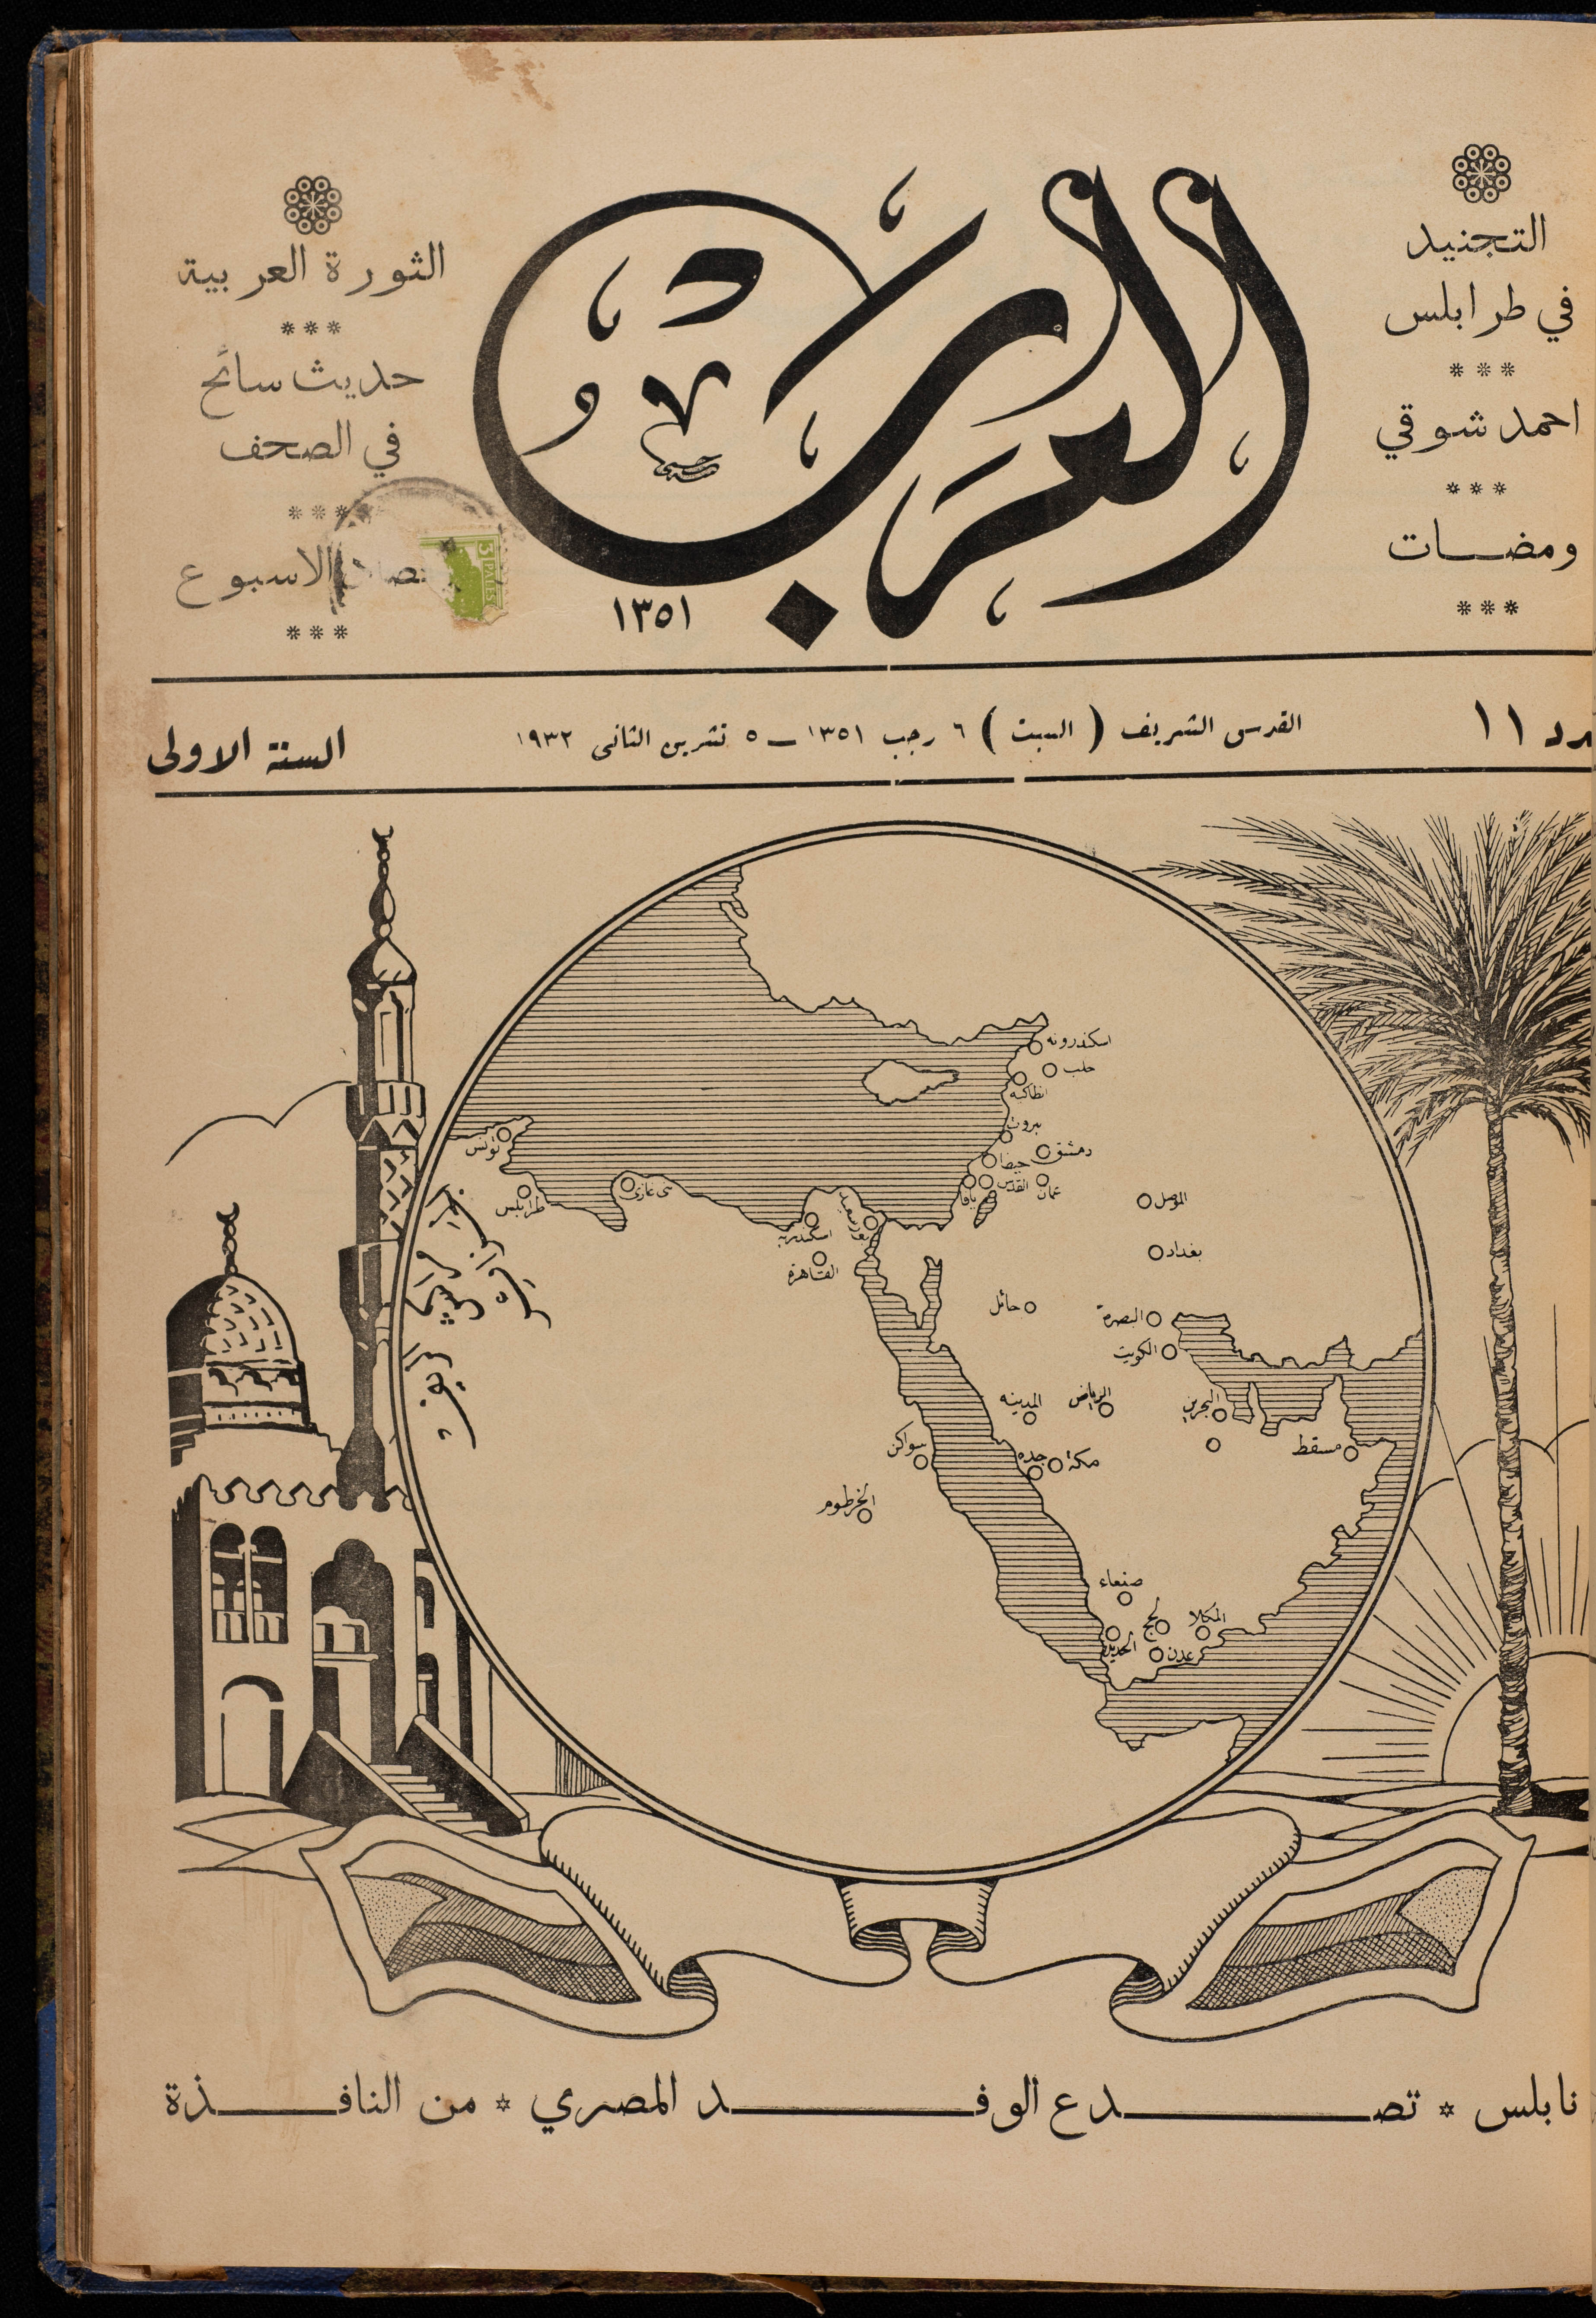 التجنيد
في طرابلس
***
احمد شوقي
***
ومضات
***
العرب
١٣٥١
الثورة العربية
***
حديث سائح
في الصحف
***
الاسبوع
***
3 PALES
١١
القدس الشريف ( السبت ) ٦ رجب ١٣٥١ — ٥ تشرين الثاني ١٩٣٢
السنة الاولى
اسكندرونه
حلب
انطاكيه
بيروت
دمشق
حيفا
القدس
يافا
عمان
تونس
طرابلس
بني غازي
بورسعيد
اسكندريه
القاهرة
الموصل
بغداد
حائل
البصرة
الكويت
المدينه
الرياض
البحرين
سواكن
جده
مكة
مسقط
الخرطوم
صنعاء
لحج
المكلا
الحديدة
عدن
الجزائر
مراكش
الريف
نابلس * تصدع الوفد المصري * من النافذة